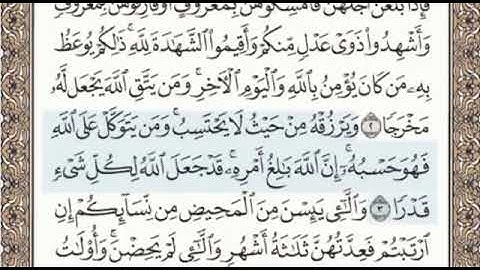 فَإِذَا بَلَغْنَ أَجَلَهُنَّ فَأَمْسِكُوهُنَّ بِمَعْرُوفٍ أَوْ فَارِقُوهُنَّ بِمَعْرُوفٍ
وَأَشْهِدُوا۟ ذَوَىْ عَدْلٍ مِّنكُمْ وَأَقِيمُوا۟ ٱلشَّهَـٰدَةَ لِلَّهِ ۚ ذَٰلِكُمْ يُوعَظُ
بِهِۦ مَن كَانَ يُؤْمِنُ بِٱللَّهِ وَٱلْيَوْمِ ٱلْـَٔاخِرِ ۚ وَمَن يَتَّقِ ٱللَّهَ يَجْعَل لَّهُۥ
مَخْرَجًا ٢ وَيَرْزُقْهُ مِنْ حَيْثُ لَا يَحْتَسِبُ ۚ وَمَن يَتَوَكَّلْ عَلَى ٱللَّهِ
فَهُوَ حَسْبُهُۥٓ ۚ إِنَّ ٱللَّهَ بَـٰلِغُ أَمْرِهِۦ ۚ قَدْ جَعَلَ ٱللَّهُ لِكُلِّ شَىْءٍ
قَدْرًا ٣ وَٱلَّـٰٓـِٔى يَئِسْنَ مِنَ ٱلْمَحِيضِ مِن نِّسَآئِكُمْ إِنِ
ٱرْتَبْتُمْ فَعِدَّتُهُنَّ ثَلَـٰثَةُ أَشْهُرٍ وَٱلَّـٰٓـِٔى لَمْ يَحِضْنَ ۚ وَأُو۟لَـٰتُ